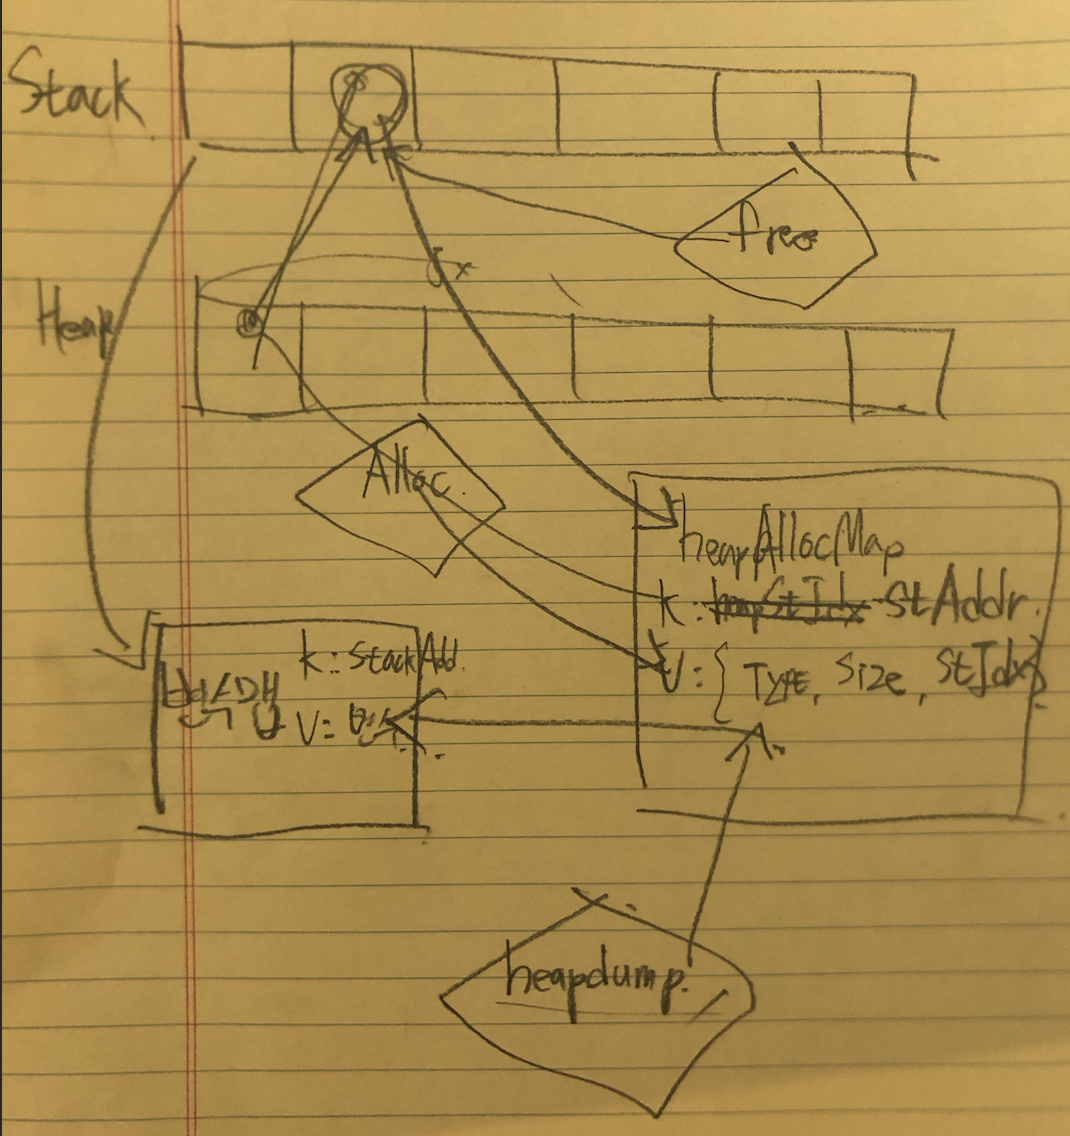 Stack
free
Heap
Alloc.
heapAllocMap
k : heapStIdx StAddr.
V : { Type, Size, StIdx }
k : StackAdd.
V =
heapdump.